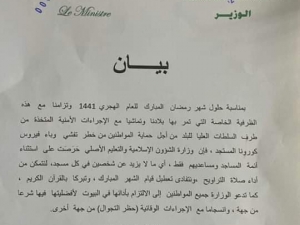 Le Ministre
الوزير
بيان
بمناسبة حلول شهر رمضان المبارك للعام الهجري 1441 وتزامنا مع هذه
الظرفية الخاصة التي تمر بها بلادنا وتماشيا مع الإجراءات الأمنية المتخذة من
طرف السلطات العليا للبلد من أجل حماية المواطنين من خطر تفشي وباء فيروس
كورونا المستجد، فإن وزارة الشؤون الإسلامية والتعليم الأصلي حرصت على استثناء
أئمة المساجد ومساعديهم فقط، أي ما لا يزيد عن شخصين في كل مسجد، لتتمكن من
أداء صلاة التراويح، وتتفادى تعطيل قيام الشهر المبارك، وتبركا بالقرآن الكريم،
كما تدعو الوزارة جميع المواطنين إلى الالتزام بأدائها في البيوت لأفضليتها فيها شرعا
من جهة، وانسجاما مع الإجراءات الوقائية (حظر التجوال) من جهة أخرى.